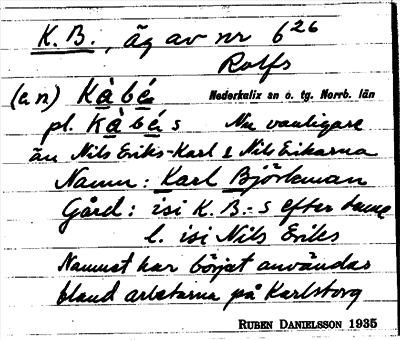 K. B., äg av nr 6 26
Rolfs
(an) Kàbé Nederkalix sn o. tg. Norrb. län
pl. Kàbés Nu vanligare
än Nils Eriks-Karl & Nils Erikarna
Namn: Karl Björkman
Gård: isi K. B.-s efter
l. isi Nils Eriks
Namnet har börjat användas
bland arbetarna på Karlsborg
RUBEN DANIELSSON 1935